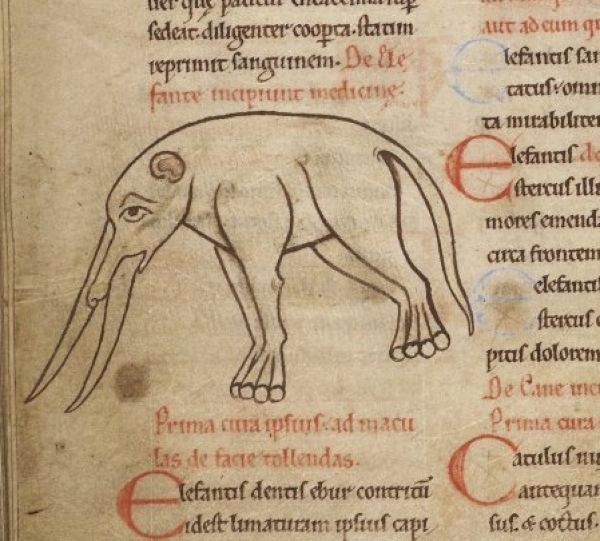 sedeat. diligenter coopta. statim
reprimit sanguinem. De Ele
fante incipiunt medicine.
Prima cura ipsius. ad macu
las de facie tollendas.
Elefantis dentis ebur contritū
idest limaturam ipsius capi
aut ad cum qu
Elefantis san
tatus. omn
ta mirabiliter
Elefantis de
stercus illi
mores emenda
circa frontem
elefantis
stercus
pitis dolorem
De Cane inci
Prima cura
Catulus
antequam
sus. & coctus.